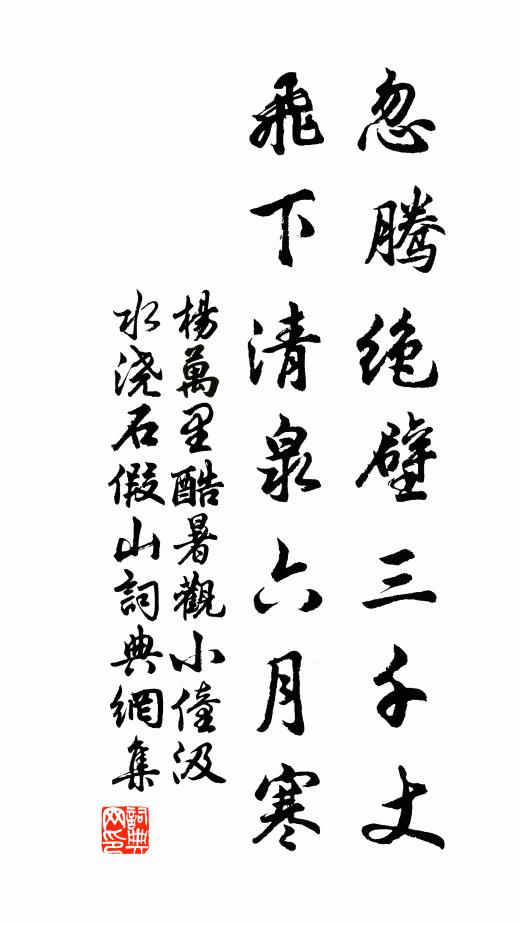 忽腾绝壁三千丈
飛下清泉六月寒
楊萬里酷暑觀小僮汲
水浇石假山詞典網集
詞典
网印